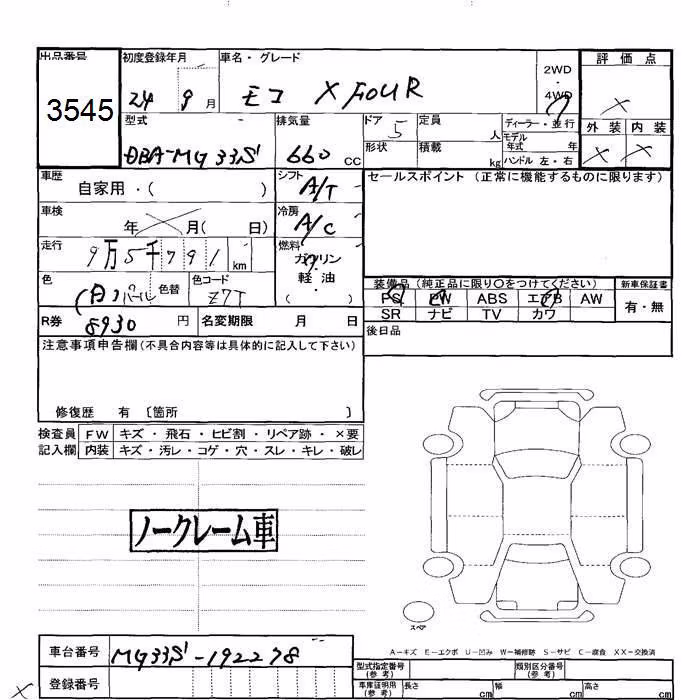 出品番号 初度登録年月 車名・グレード 2WD・4WD 評価点
3545 24 9月 モコ X FOUR ×
型式 排気量 ドア 5 定員 人 ディーラー・並行 外装 内装
DBA-MG33S 660 CC 形状 積載 kg モデル年式 年 × ×
ハンドル 左・右
車歴 自家用・( ) シフト A/T セールスポイント (正常に機能するものに限ります)
車検 年 月( 日) 冷房 A/C
走行 9万5千791 km 燃料 ガソリン
軽油
・( )
色 (白)パール 色替 色コード Z7T
装備品 (純正品に限り○をつけてください) 新車保証書
PS PW ABS エアB AW 有・無
SR ナビ TV カワ
R券 8930 円 名変期限 月 日 後日品
注意事項申告欄(不具合内容等は具体的に記入して下さい)
修復歴 有 〔箇所 〕
検査員 FW キズ・飛石・ヒビ割・リペア跡・×要
記入欄 内装 キズ・汚レ・コゲ・穴・スレ・キレ・破レ
ノークレーム車
スペア
A-キズ E-エクボ U-凹み W-補修跡 S-サビ C-腐食 XX-交換済
車台番号 MG33S-192278
型式指定番号(参考) 類別区分番号(参考)
登録番号
車庫証明用(参考) 長さ cm 幅 cm 高さ cm
×